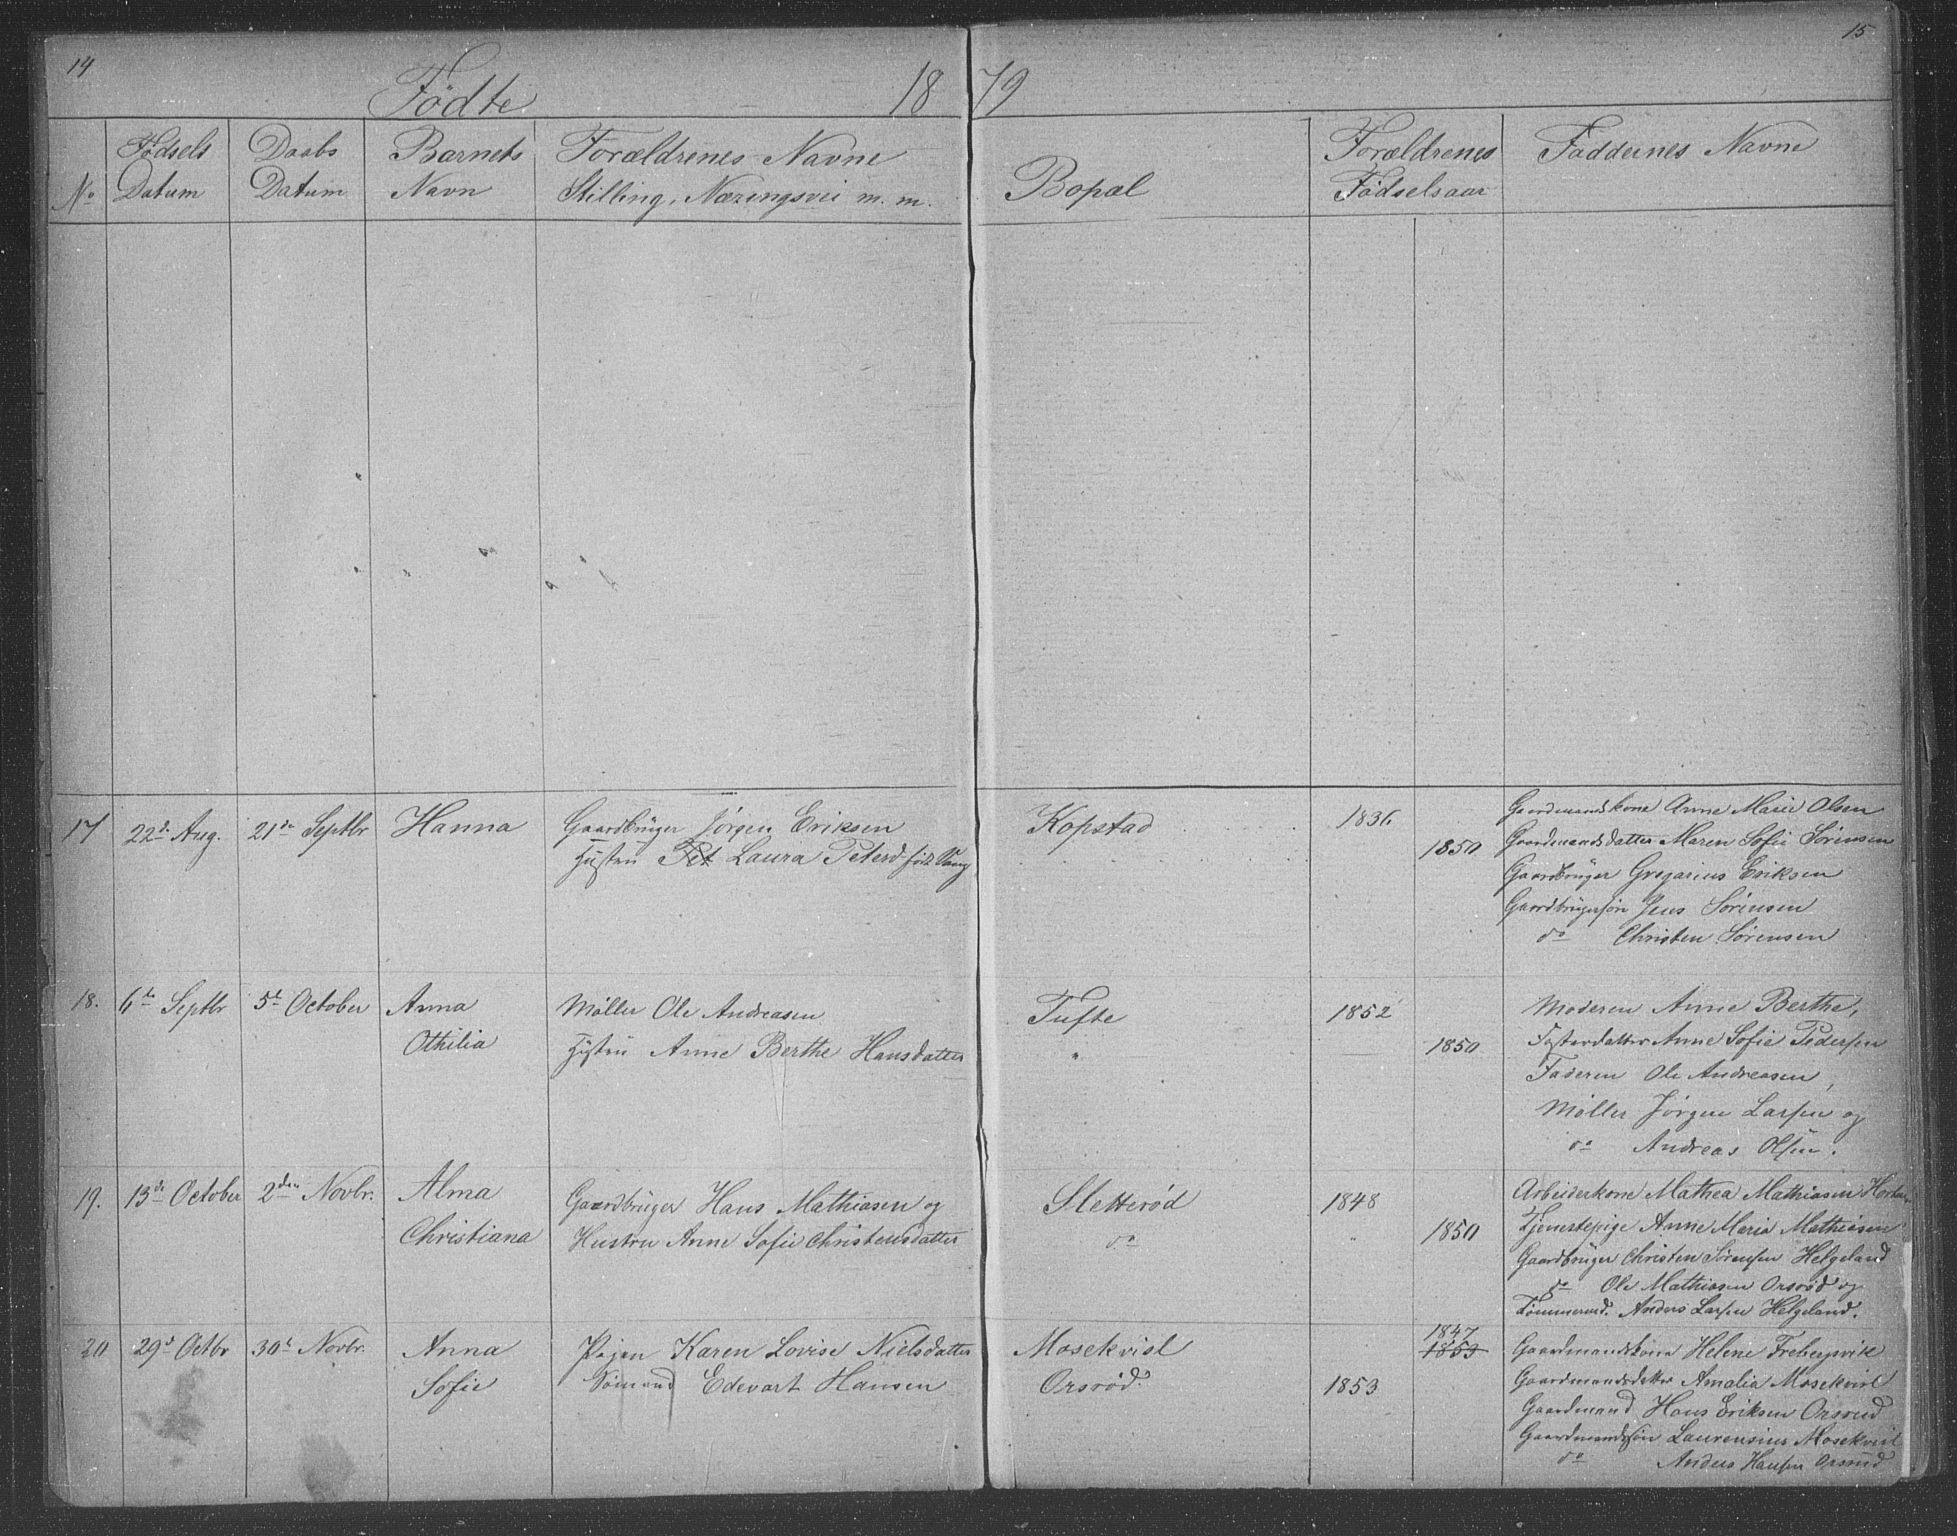 14
15
Födte 1879
No
Födsels Datum
Daabs Datum
Barnets Navn
Forældrenes Navne
Stilling, Næringsvei m. m.
Bopæl
Forældrenes Fødselsaar
Faddernes Navne
17 22de Aug. 21de Septbr Hanna
Gaardbrüger Jørgen Eriksen
Hustru Pet Laura Petersd. född Vang
Kopstad
1836
1850
Gaardmandskone Anne Marie Olsen
Gaardmandsdatter Maren Sofie Sørensen
Gaardbrüger Gregarius Eriksen
Gaardbrügersøn Jens Sörensen
do Christen Sørensen
18. 6te Septbr 5te October Anna
Othilia
Möller Ole Andreasen
Hustru Anne Berthe Hansdatter
Tufte
"
1852
1850
Moderen Anne Berthe,
Fosterdatter Anne Sofie Pedersen
Faderen Ole Andreasen,
Møller Jörgen Larsen og
do Andreas Olsen.
19. 13de October 2den Novbr. Alma
Christiana
Gaardbrüger Hans Mathiasen og
Hustru Anne Sofie Christensdatter
Sletterød
do
1848
"
1850
Arbeiderkone Mathea Mathiasen
Tjenestepige Anne Maria Mathiasen
Gaardbrüger Christen Sörensen Helgeland
do Ole Mathiasen Orsröd og
Tömmermd. Anders Larsen Helgeland.
20 29de Octbr 30te Novbr. Anna
Sofie
Pigen Karen Lovise Nielsdatter
Sømand Edevart Hansen
Mosekvisl
Orsröd.
1847
1853
1853
Gaardmandskone Helene Frebergsvik
Gaardmandsdatter Amalia Mosekvisl
Gaardmand Hans Eriksen Orsröd
Gaardmandssön Laurensius Mosekvisl
do Anders Hansen Orsröd